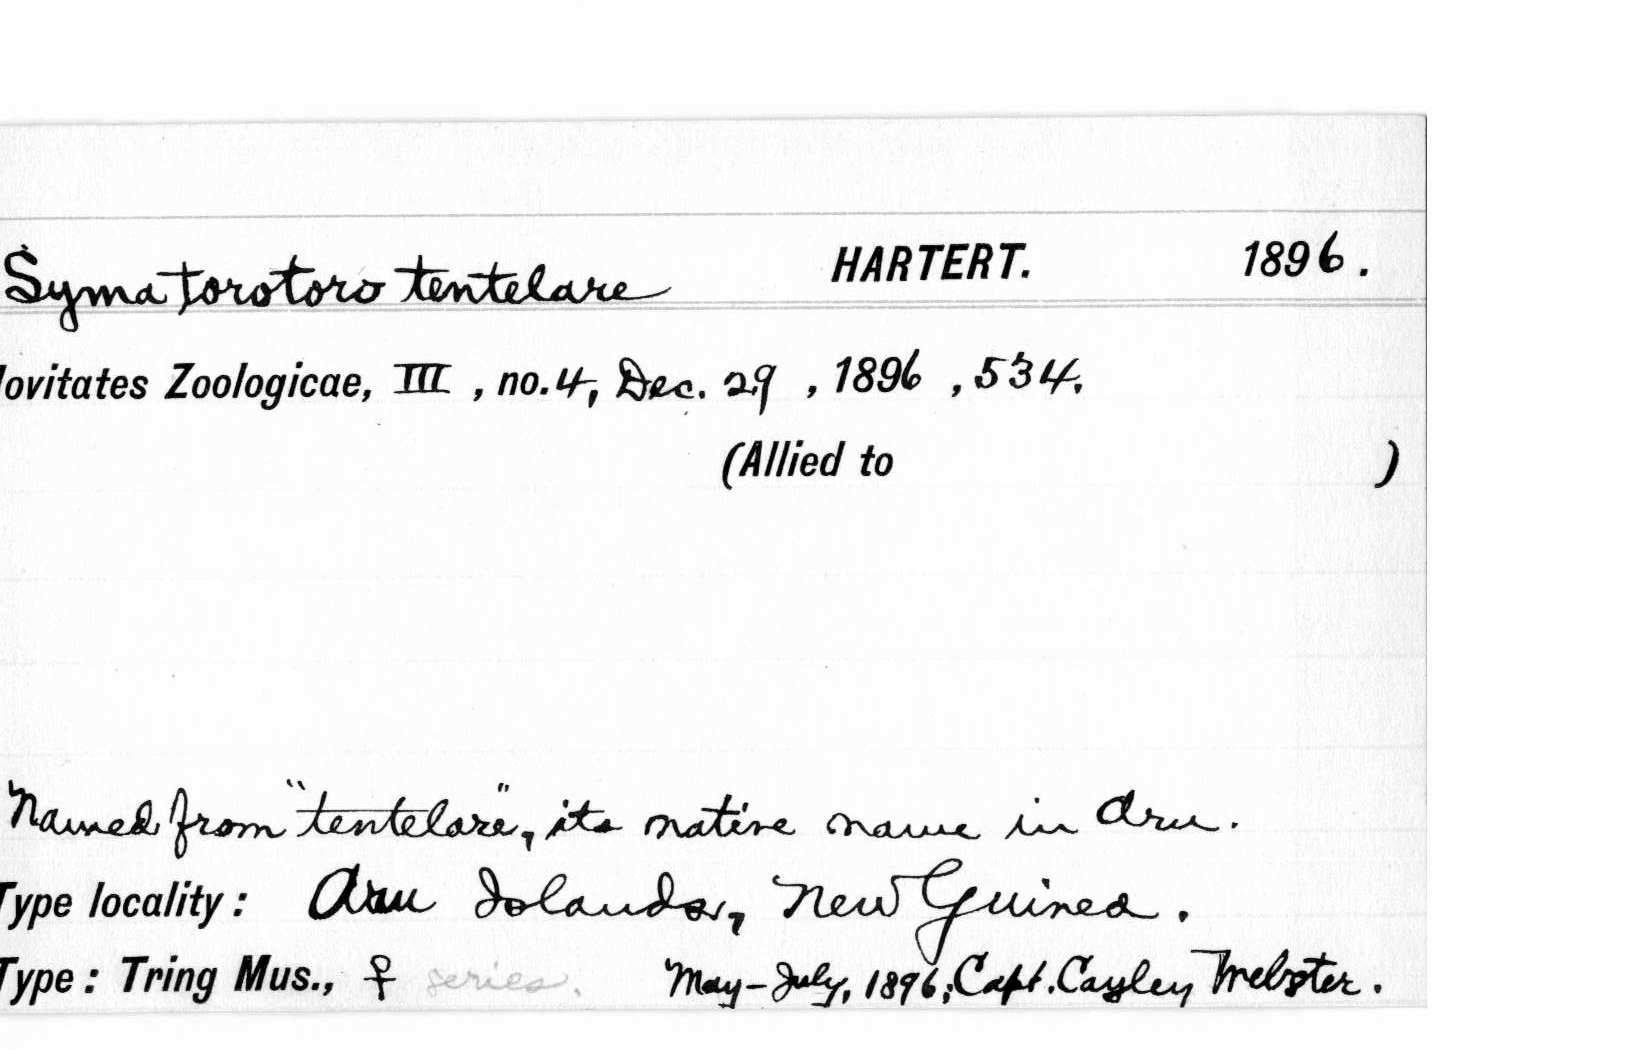 Syma torotoro tentelare HARTERT. 1896.
ovitates Zoologicae, III, no. 4, Dec. 29, 1896, 534.
(Allied to )
Named from "tentelare", its native name in Aru.
Type locality: Aru Islands, New Guinea.
Type: Tring Mus., ♀ series. May-July, 1896; Capt. Cayley Webster.